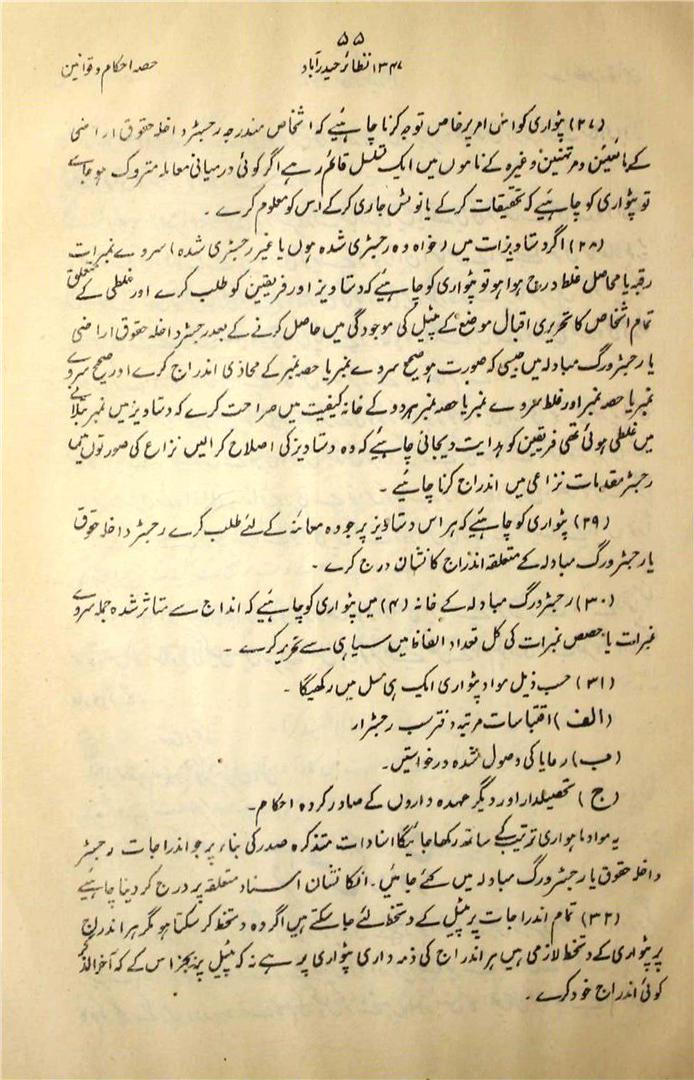 ۵۵
حصہ احکام و قوانین
۱۳۴۷ نظائر حیدرآباد
(۲۷) پٹواری کو اس امر پر خاص توجہ کرنا چاہئیے کہ اشخاص مندرجہ رجسٹر داخلہ حقوق اراضی
کے بائعین و مرتہنین وغیرہ کے ناموں میں ایک تسلسل قائم رہے اگر کوئی درمیانی معاملہ متروک ہو جاے
تو پٹواری کو چاہئیے کہ تحقیقات کر کے یا نوٹس جاری کر کے اس کو معلوم کرے ۔
(۲۸) اگر دستاویزات میں (خواہ وہ رجسٹری شدہ ہوں یا غیر رجسٹری شدہ) سروے نمبرات
رقبہ یا محاصل غلط درج ہوا ہو تو پٹواری کو چاہئیے کہ دستاویز اور فریقین کو طلب کرے اور غلطی کے متعلق
تمام اشخاص کا تحریری اقبال موضع کے پٹیل کی موجودگی میں حاصل کرنے کے بعد رجسٹر داخلہ حقوق اراضی
یا رجسٹر ورگ مبادلہ میں جیسی کہ صورت ہو صحیح سروے نمبر یا حصہ نمبر کے محاذی اندراج کرے اور صحیح سروے
نمبر یا حصہ نمبر اور غلط سروے نمبر یا حصہ نمبر ہر دو کے خانہ کیفیت میں صراحت کرے کہ دستاویز میں نمبر بتلانے
میں غلطی ہوئی تھی فریقین کو ہدایت دیجانی چاہئیے کہ وہ دستاویز کی اصلاح کرالیں نزاع کی صورتوں میں
رجسٹر مقدمات نزاعی میں اندراج کرنا چاہئیے ۔
(۲۹) پٹواری کو چاہئیے کہ ہر اس دستاویز پر جو وہ معائنہ کے لئے طلب کرے رجسٹر داخلہ حقوق
یا رجسٹر ورگ مبادلہ کے متعلقہ اندراج کا نشان درج کرے ۔
(۳۰) رجسٹر ورگ مبادلہ کے خانہ (۴) میں پٹواری کو چاہئیے کہ انداج سے متاثر شدہ جملہ سروے
نمبرات یا حصص نمبرات کی کل تعداد الفاظ میں سیاہی سے تحریر کرے ۔
(۳۱) حسب ذیل مواد پٹواری ایک ہی مسل میں رکھیگا ۔
(الف) اقتباسات مرتبہ دفتر سب رجسٹرار
(ب) رعایا کی وصول شدہ درخواستیں۔
(ج) تحصیلدار اور دیگر عہدہ داروں کے صادر کردہ احکام۔
یہ مواد ماہواری ترتیب کے ساتھ رکھا جائیگا اسنادات متذکرہ صدر کی بناء پر جو اندراجات رجسٹر
داخلہ حقوق یا رجسٹر ورگ مبادلہ میں کئے جائیں۔ انکا نشان اسناد متعلقہ پر درج کر دینا چاہئیے
(۳۲) تمام اندراجات پر پٹیل کے دستخط لئے جا سکتے ہیں اگر وہ دستخط کر سکتا ہو مگر ہر اندراج
پر پٹواری کے دستخط لازمی ہیں ہر اندراج کی ذمہ داری پٹواری پر ہے نہ کہ پٹیل پر بجز اس کے کہ آخر الذکر
کوئی اندراج خود کرے ۔